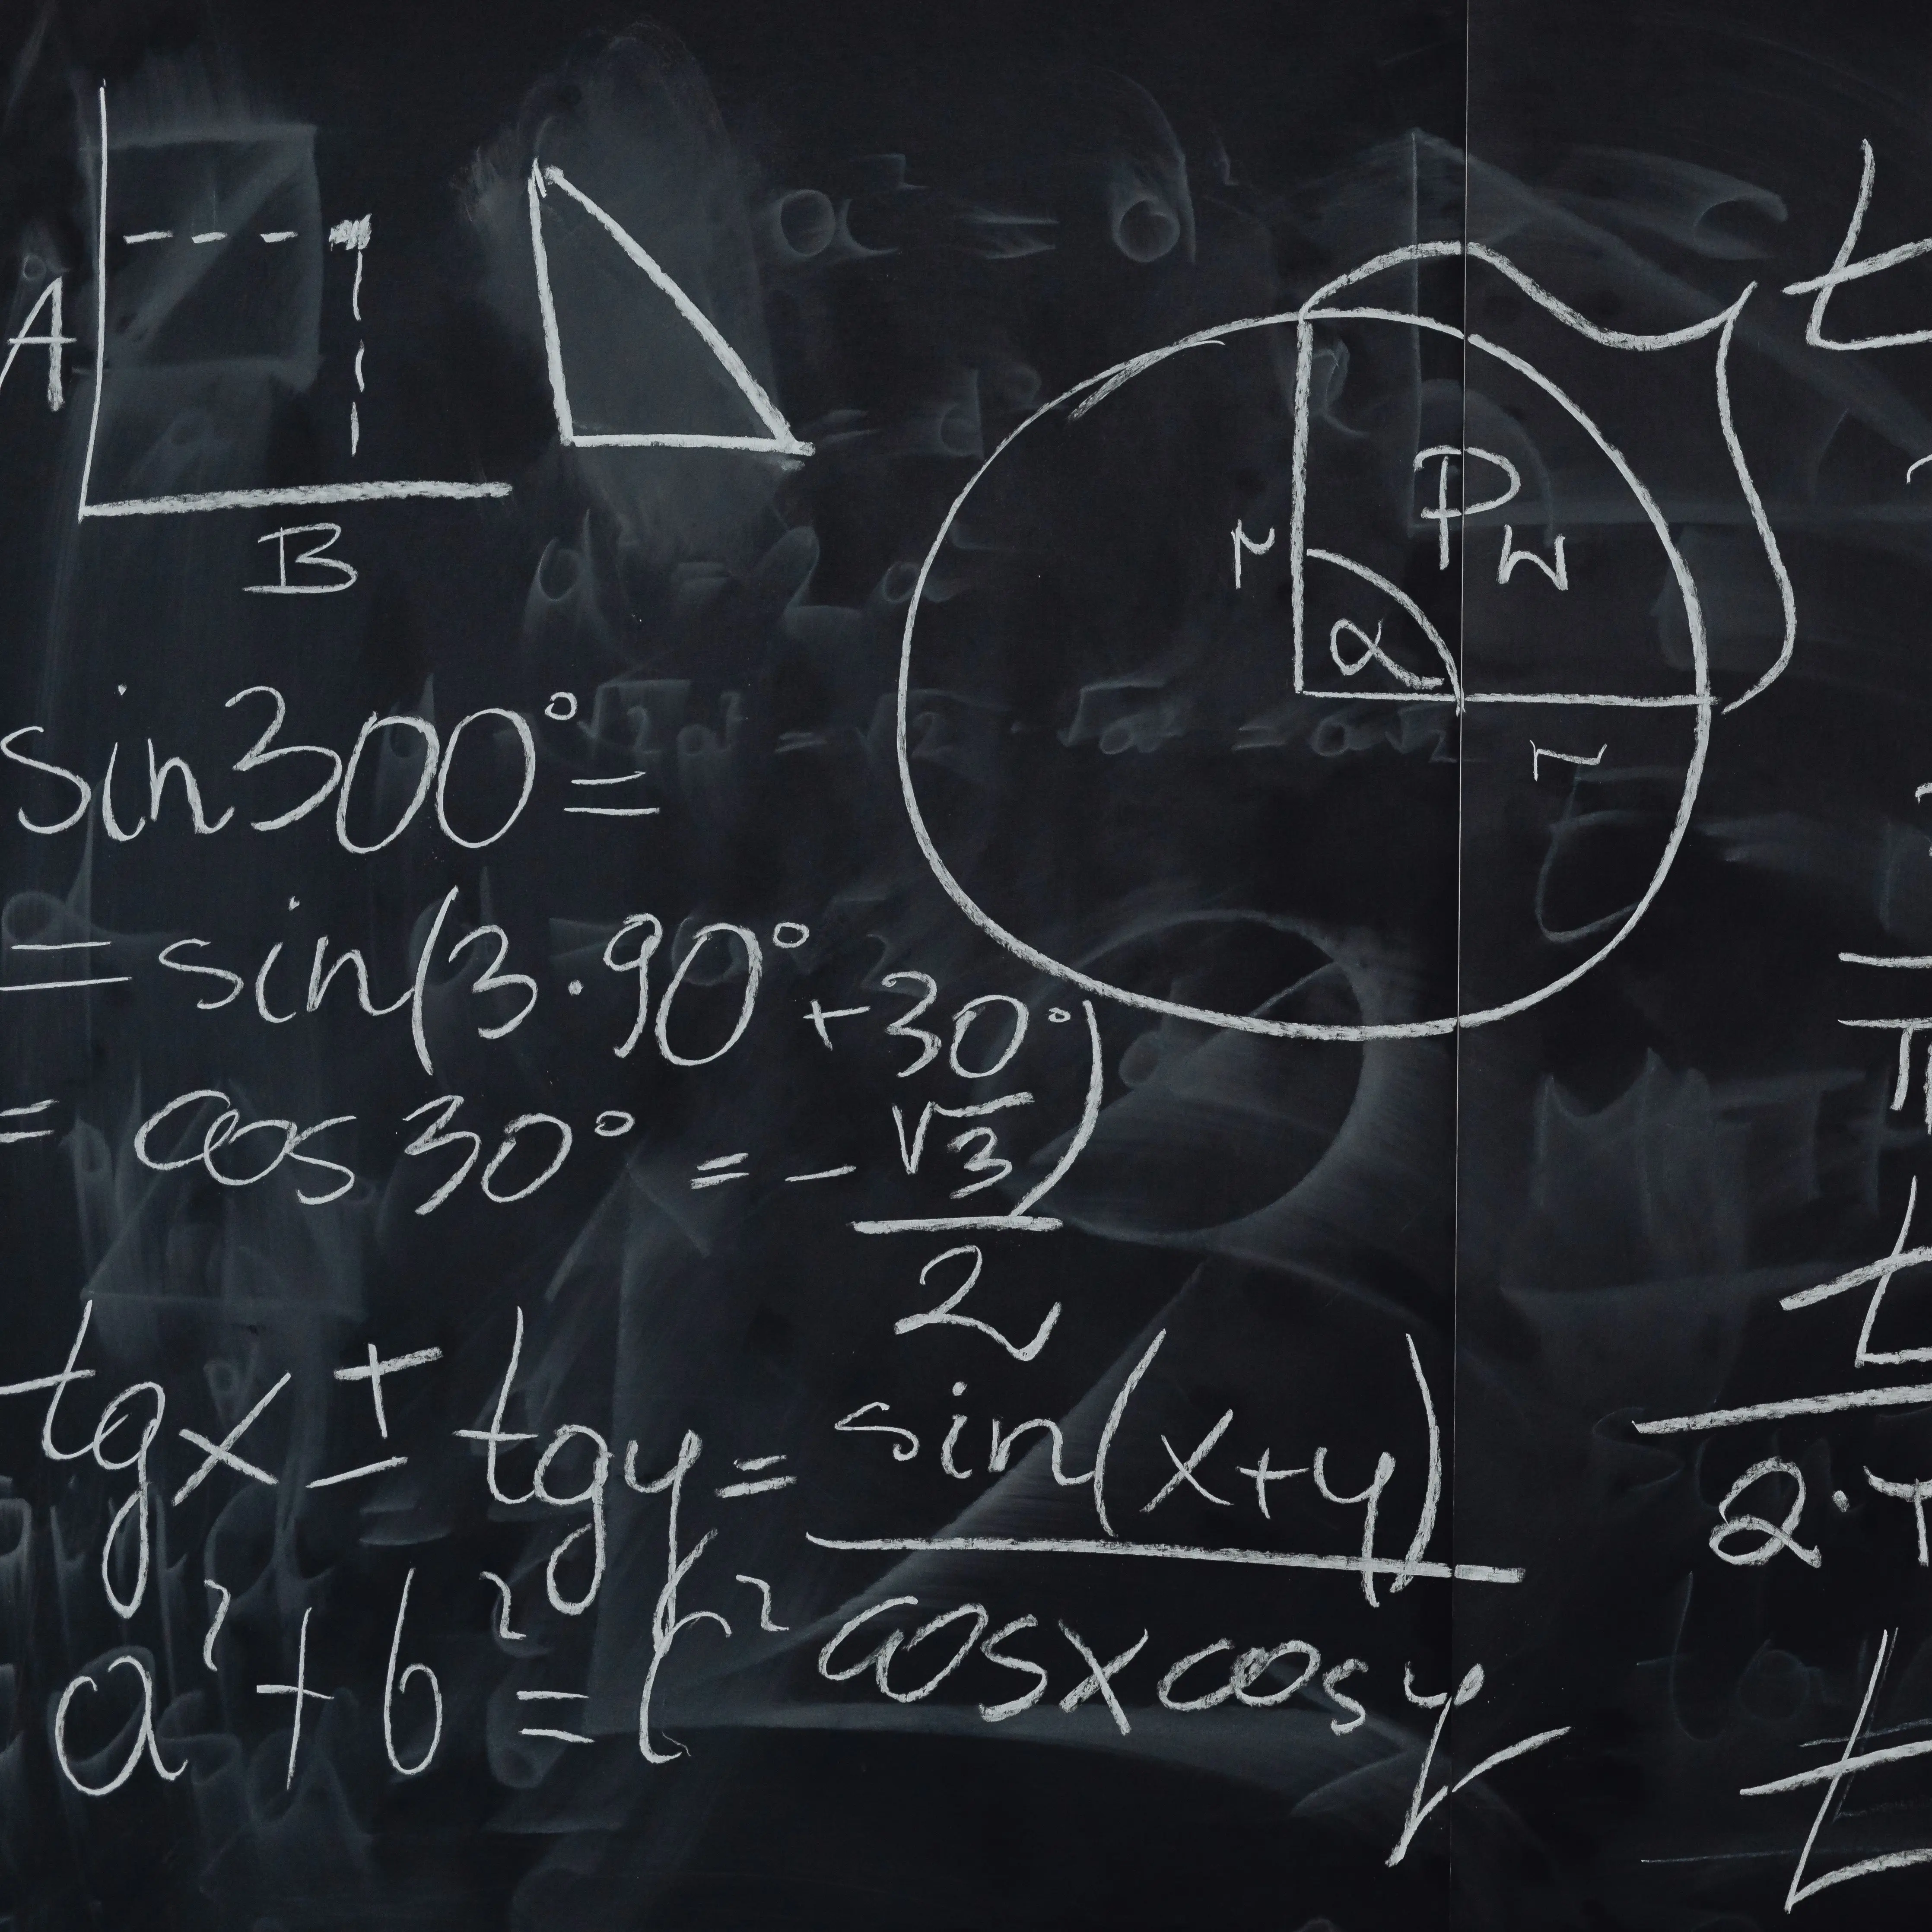 A
B
r
P_W
α
r
sin300°=
= sin(3·90°+30°)
= cos 30° = - √3/2
tgx ± tgy = sin(x+y)/cosxcosy
a²+b²=c²